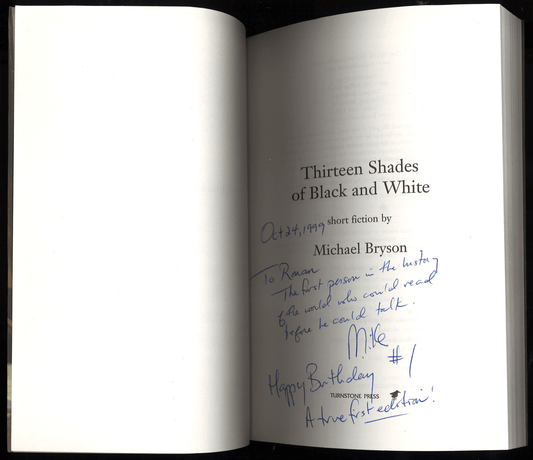 Thirteen Shades
of Black and White
Oct 24, 1999
short fiction by
Michael Bryson
To Ronan
The first person in the history
of the world who could read
before he could talk.
Mike
Happy Birthday #1
TURNSTONE PRESS
A true first edition!